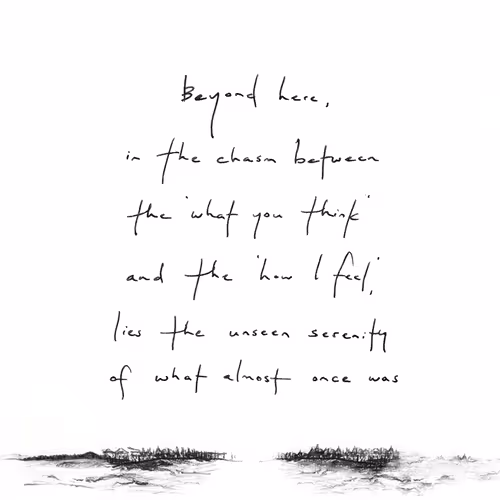 Beyond here,
in the chasm between
the 'what you think'
and the 'how I feel',
lies the unseen serenity
of what almost once was